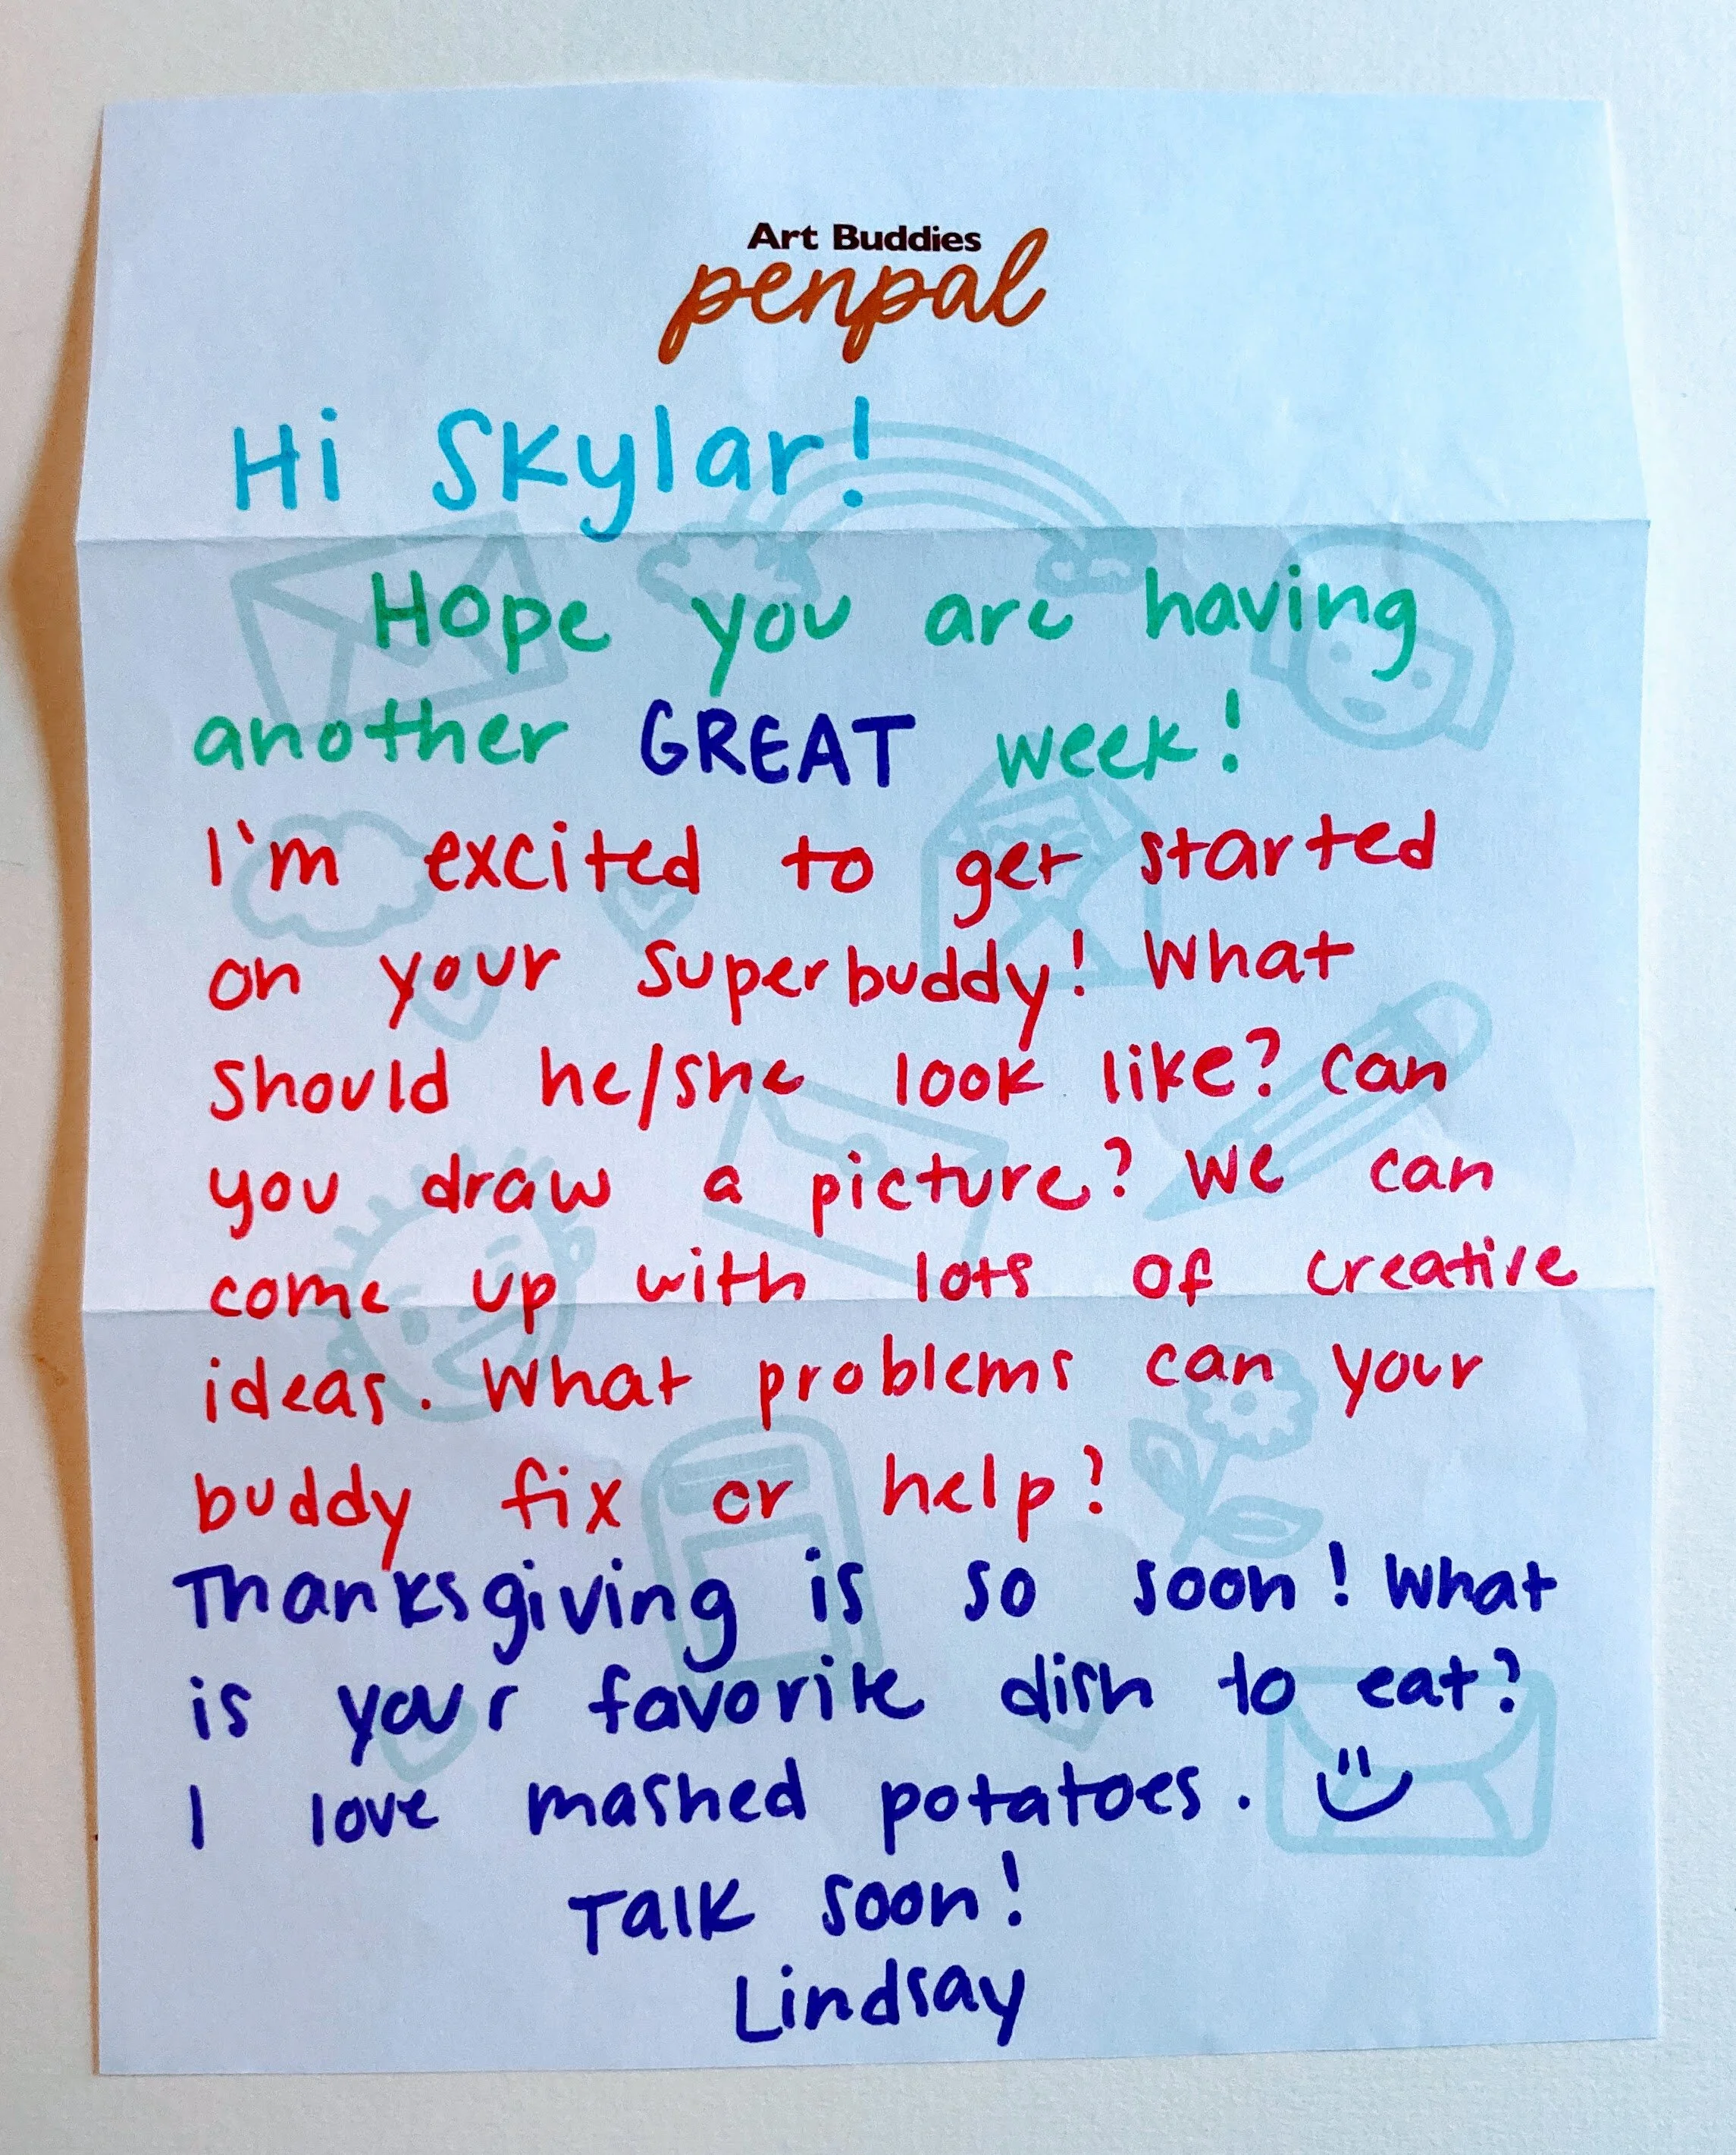 Art Buddies
penpal
Hi Skylar!
Hope you are having
another GREAT week!
I'm excited to get started
on your superbuddy! What
should he/she look like? Can
you draw a picture? We can
come up with lots of creative
ideas. What problems can your
buddy fix or help?
Thanksgiving is so soon! What
is your favorite dish to eat?
I love mashed potatoes.
Talk soon!
Lindsay